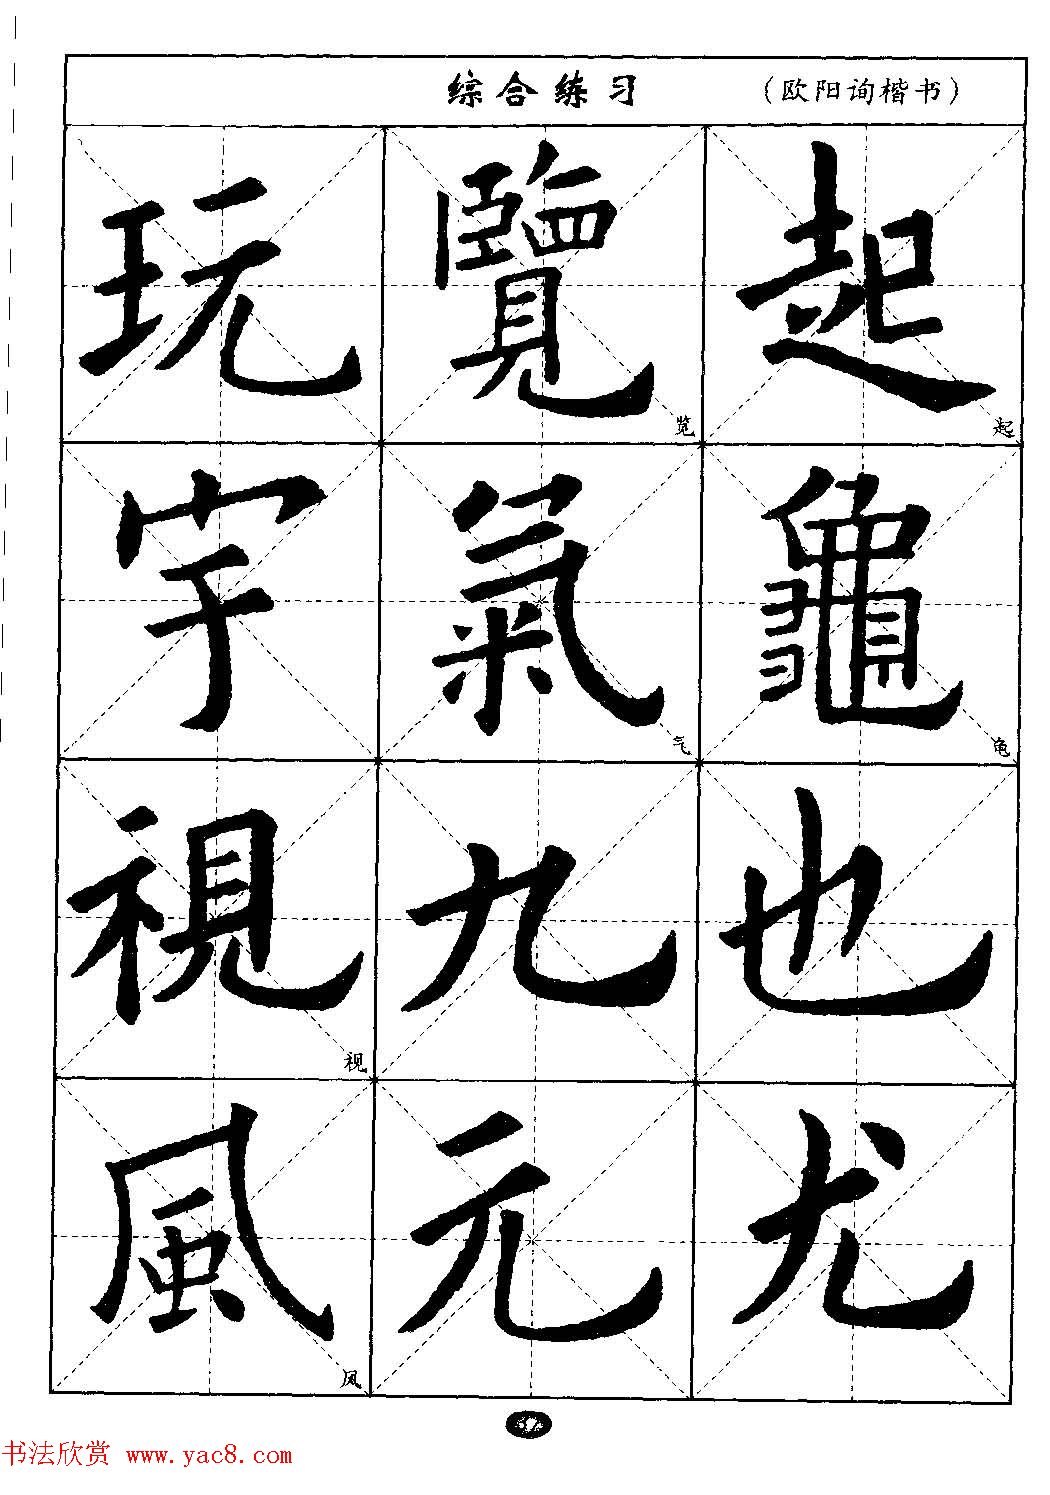 综合练习 (欧阳询楷书)
玩 覽 览 起 起
宇 氣 气 龜 龟
視 视 九 也
風 风 元 尤
37
书法欣赏 www.yac8.com